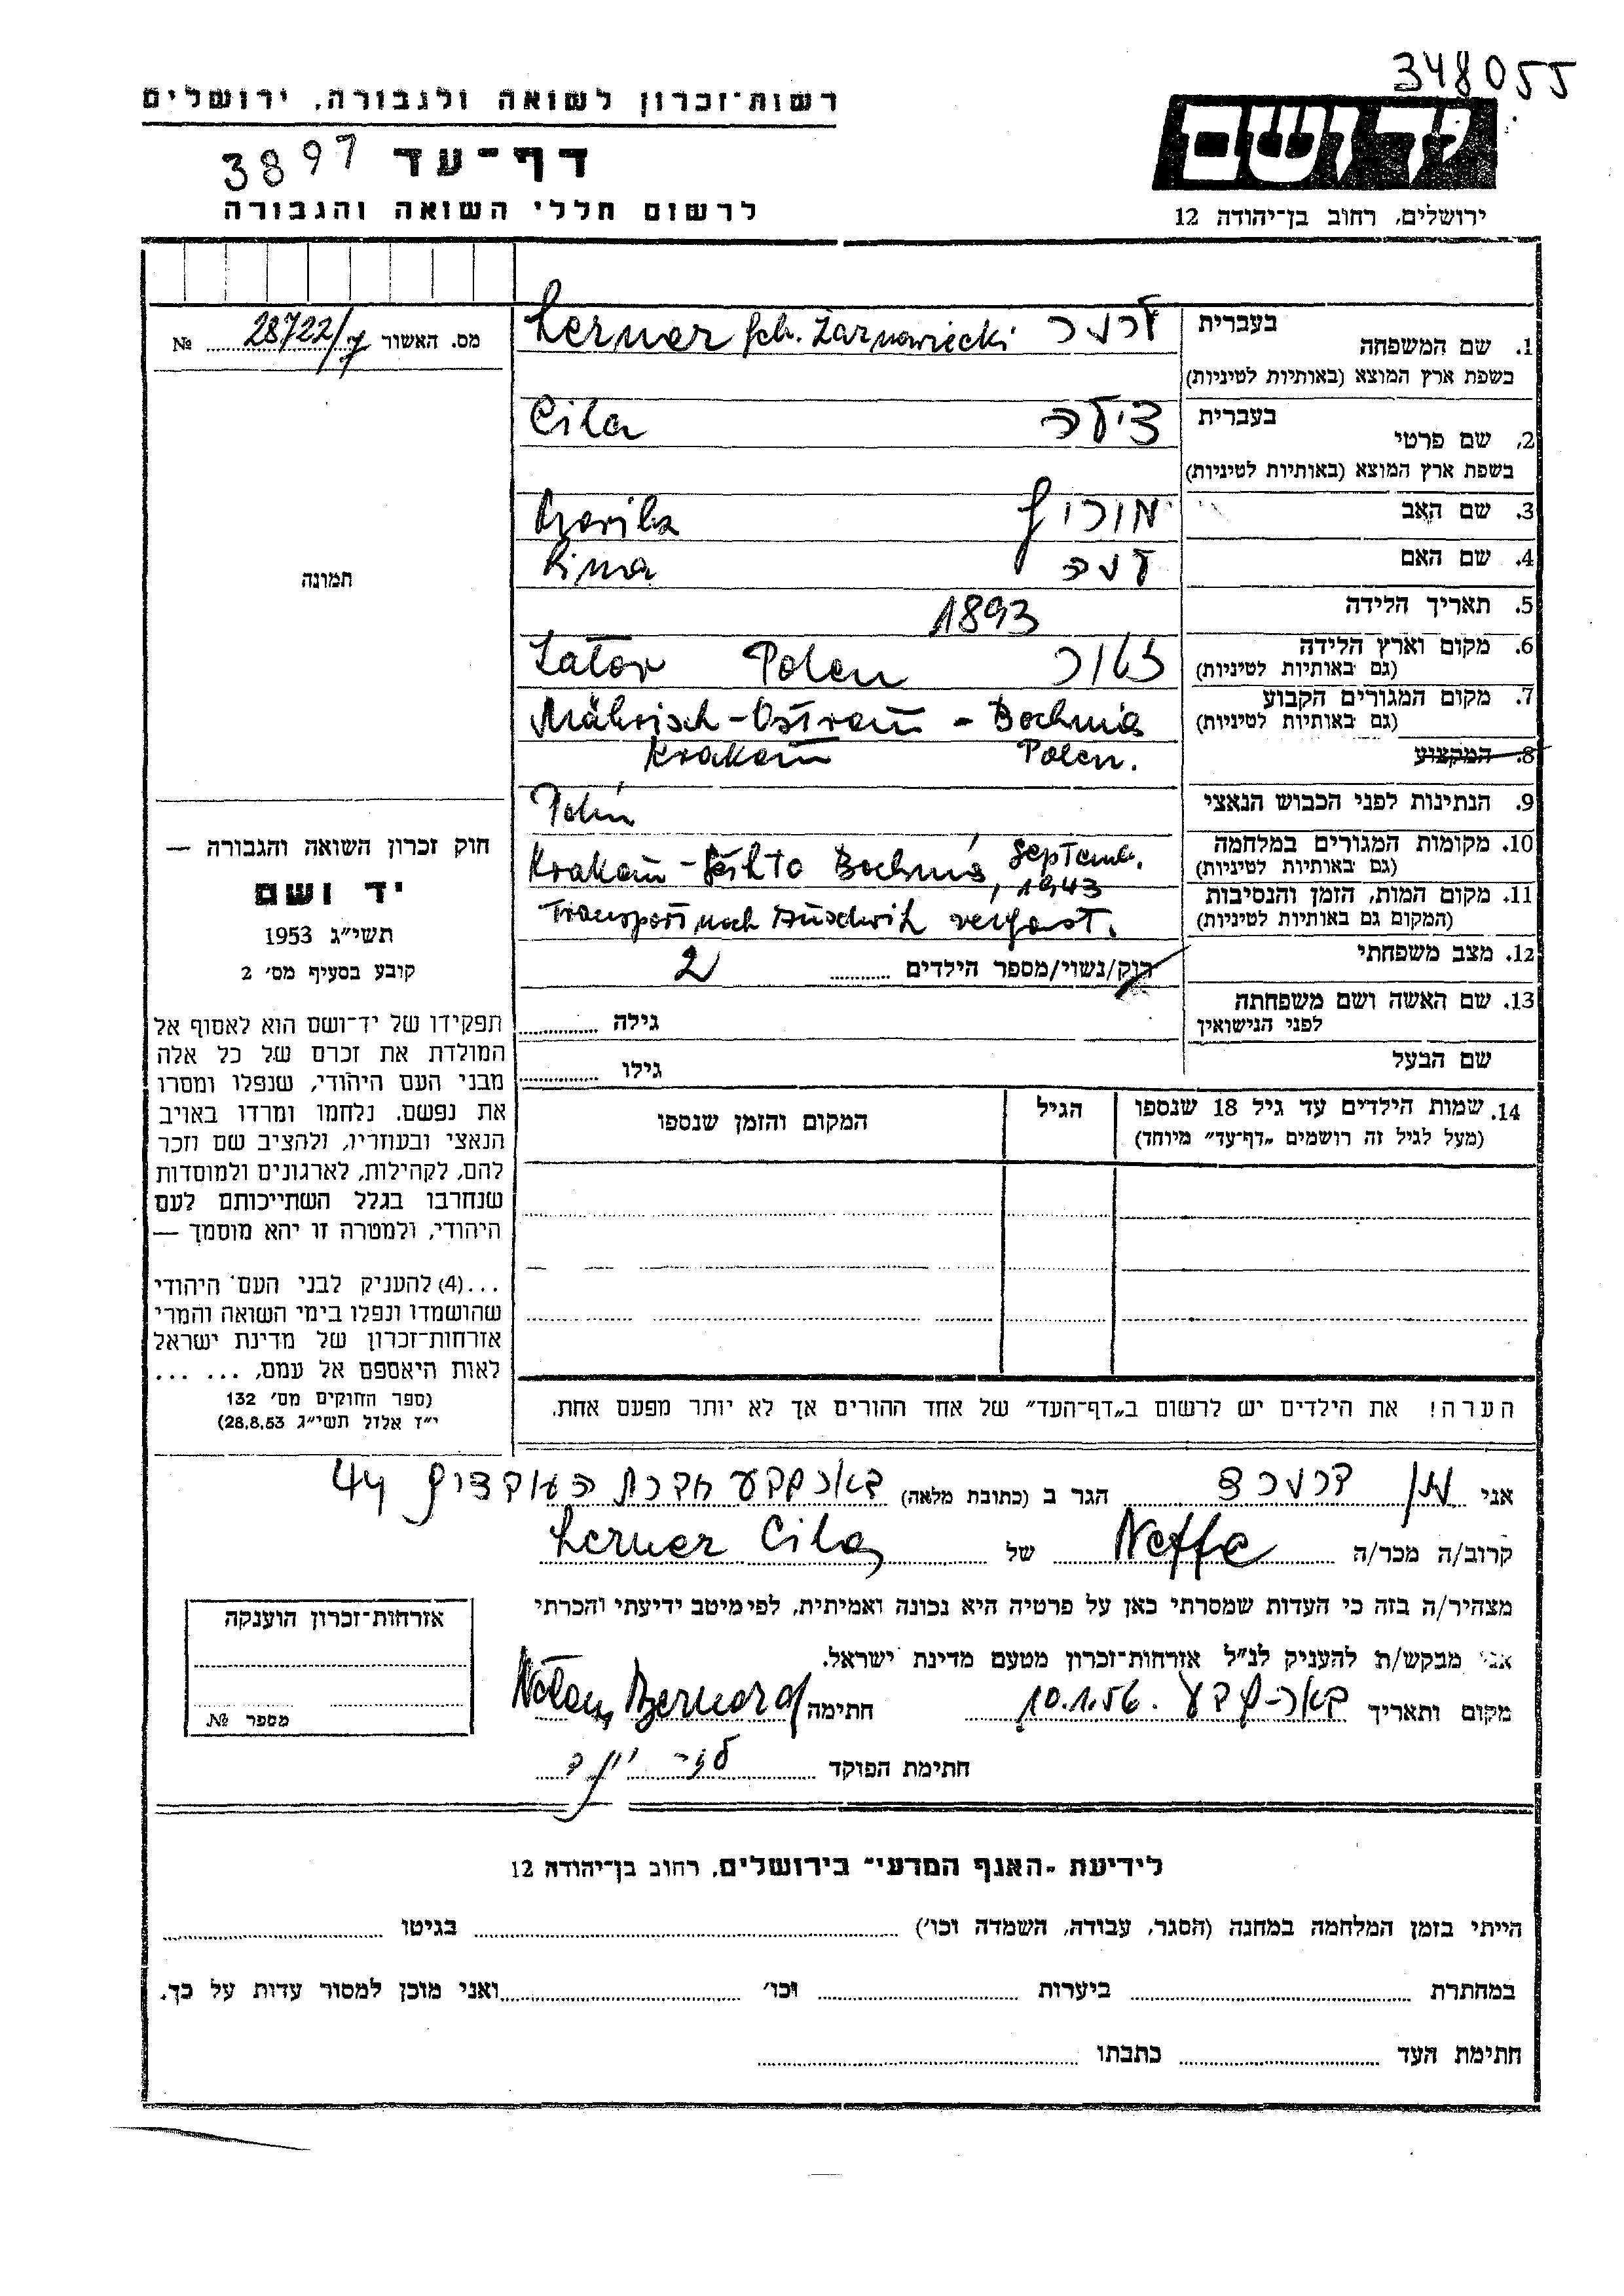 348055
רשות־זכרון לשואה ולגבורה, ירושלים
דף־עד 3897
לרשום חללי השואה והגבורה
יד ושם
ירושלים, רחוב בן־יהודה 12
מס. האשור 28722/7 №
תמונה
חוק זכרון השואה והגבורה —
יד ושם
תשי״ג 1953
קובע בסעיף מס׳ 2
תפקידו של יד־ושם הוא לאסוף אל
המולדת את זכרם של כל אלה
מבני העם היהודי, שנפלו ומסרו
את נפשם. נלחמו ומרדו באויב
הנאצי ובעוזריו, ולהציב שם וזכר
להם, לקהילות, לארגונים ולמוסדות
שנחרבו בגלל השתייכותם לעם
היהודי, ולמטרה זו יהא מוסמך —
...(4) להעניק לבני העם היהודי
שהושמדו ונפלו בימי השואה והמרי
אזרחות־זכרון של מדינת ישראל
לאות היאספם אל עמם, ... ...
(ספר החוקים מס׳ 132
י״ז אלול תשי״ג 28.8.53)
בעברית
1. שם המשפחה לרנר Lerner geb. Zarnowiecki
בשפת ארץ המוצא (באותיות לטיניות)
בעברית
2. שם פרטי צילה Cila
בשפת ארץ המוצא (באותיות לטיניות)
3. שם האב
4. שם האם
5. תאריך הלידה 1893
6. מקום וארץ הלידה זטור Zator Polen
(גם באותיות לטיניות)
7. מקום המגורים הקבוע Mährisch-Ostrau - Bochnia
(גם באותיות לטיניות)
8. המקצוע Krakau Polen.
9. הנתינות לפני הכבוש הנאצי
10. מקומות המגורים במלחמה Krakau - Bochnia, Septemb. 1943
(גם באותיות לטיניות)
11. מקום המות, הזמן והנסיבות Transport nach vergast.
(המקום גם באותיות לטיניות)
12. מצב משפחתי רוק/נשוי/מספר הילדים 2
13. שם האשה ושם משפחתה גילה
לפני הנישואין
שם הבעל גילו
14. שמות הילדים עד גיל 18 שנספו הגיל המקום והזמן שנספו
(מעל לגיל זה רושמים „דף־עד״ מיוחד)
הערה! את הילדים יש לרשום ב„דף־העד״ של אחד ההורים אך לא יותר מפעם אחת.
אני נתן ברנרד הגר ב (כתובת מלאה) באר שבע 44
קרוב/ה מכר/ה Neffe של Lerner Cila
מצהיר/ה בזה כי העדות שמסרתי כאן על פרטיה היא נכונה ואמיתית, לפי מיטב ידיעתי והכרתי
אני מבקש/ת להעניק לנ״ל אזרחות־זכרון מטעם מדינת ישראל.
מקום ותאריך באר-שבע 10.1.56. חתימה Natan Bernard
חתימת הפוקד
אזרחות־זכרון הוענקה
מספר №
לידיעת „האגף המדעי״ בירושלים, רחוב בן־יהודה 12
הייתי בזמן המלחמה במחנה (הסגר, עבודה, השמדה וכו׳) בגיטו
במחתרת ביערות וכו׳ ואני מוכן למסור עדות על כך.
חתימת העד כתבתו